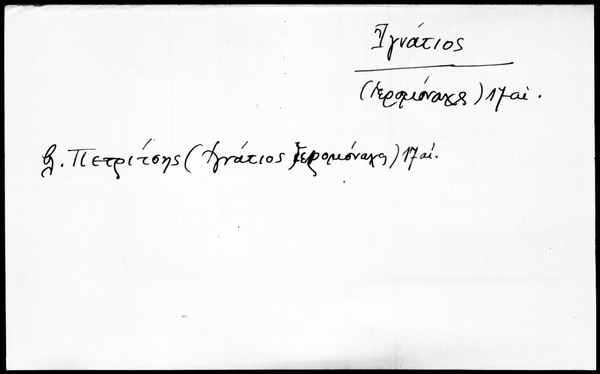 Ἰγνάτιος
(Ἱερομόναχος) 17 αἰ.
βλ. Πετρίτσης (Ἰγνάτιος Ἱερομόναχος) 17 αἰ.